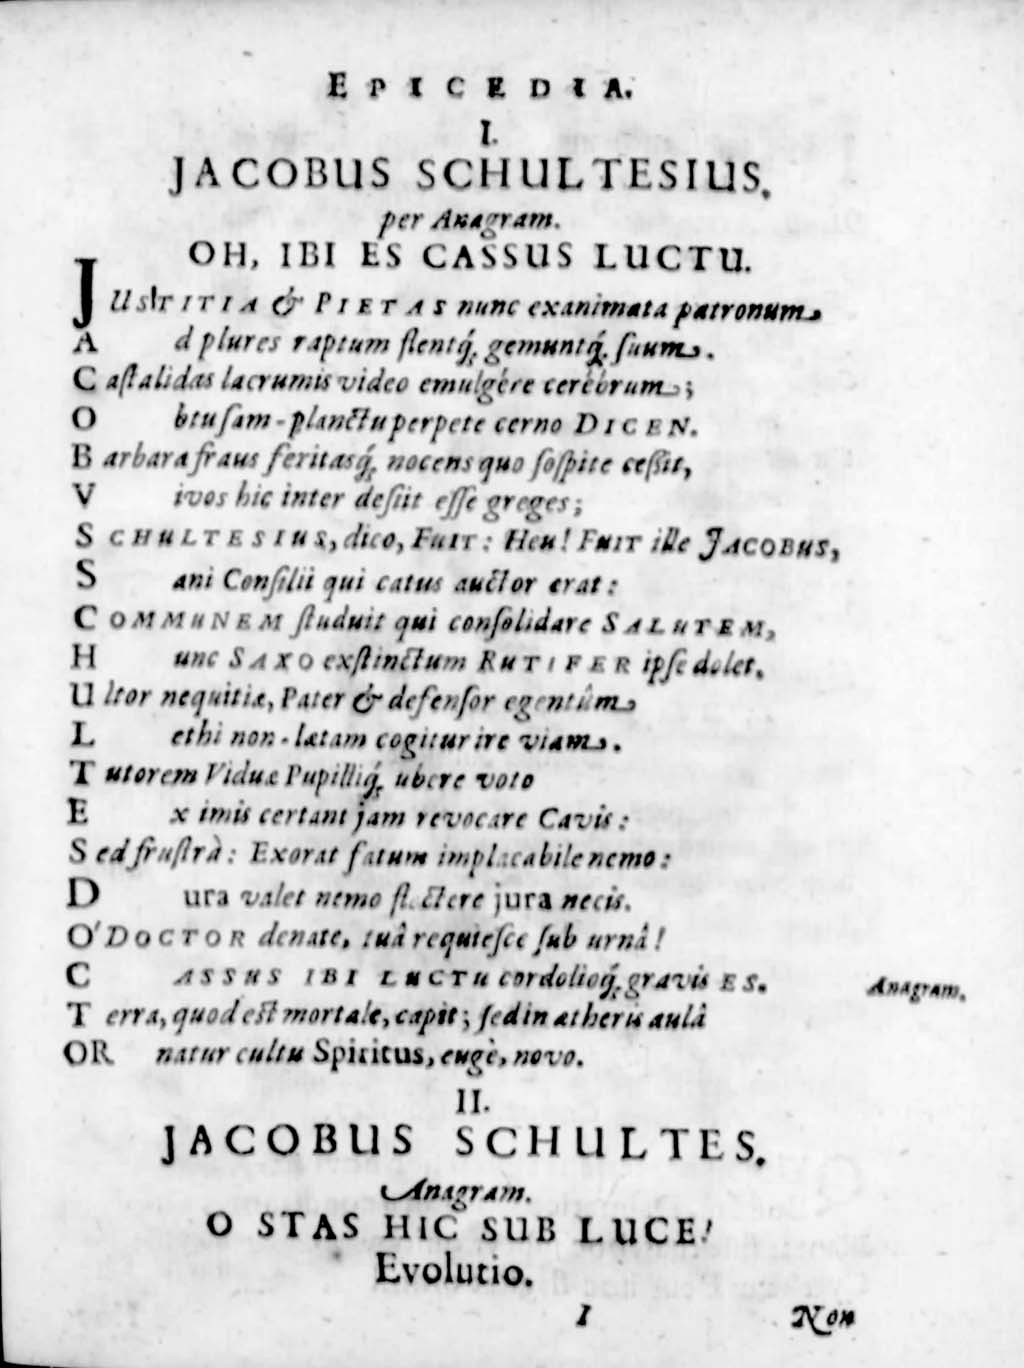 EPICEDIA.
I.
JACOBUS SCHULTESIUS.
per Anagram.
OH, IBI ES CASSUS LUCTU.
JUSTITIA & PIETAS nunc exanimata patronum
Ad plures raptum flentq́; gemuntq́; ſuum.
Caſtalidas lacrumis video emulgére cerébrum;
Obtuſam-planctu perpete cerno DICEN.
Barbara fraus feritasq́; nocens quo ſoſpite ceſſit,
Vivos hic inter deſiit eſſe greges;
SCHULTESIUS, dico, FUIT: Heu! FUIT ille JACOBUS,
Sani Conſilii qui catus auctor erat:
COMMUNEM ſtuduit qui conſolidare SALUTEM,
Hunc SAXO exſtinctum RUTIFER ipſe dolet.
Ultor nequitiæ, Pater & defenſor egentûm
Lethi non-lætam cogitur ire viam.
Tutorem Viduæ Pupilliq́; ubere voto
Ex imis certant jam revocare Cavis:
Sed fruſtrà: Exorat fatum implacabile nemo:
Dura valet nemo flectere jura necis.
O' DOCTOR denate, tuâ requieſce ſub urnâ!
CASSUS IBI LUCTU cordolioq́; gravis ES. Anagram.
Terra, quod eſt mortale, capit; ſed in ætheris aulâ
ORnatur cultu Spiritus, eugè, novo.
II.
JACOBUS SCHULTES.
Anagram.
O STAS HIC SUB LUCE!
Evolutio.
I Non